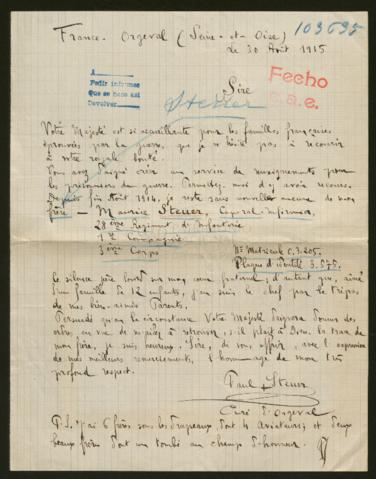 103695
France. Orgeval (Seine-et-Oise)
le 30 Août 1915
A
Pedir informes
Que se hace así
Devolver
Fecho
Steuer
Sire,
Votre Majesté est si accueillante pour les familles françaises
éprouvées par la guerre, que je n'hésite pas à recourir
à votre royale bonté.
Vous avez daigné créer un service de renseignements pour
les prisonniers de guerre. Permettez-moi d'y avoir recours.
Depuis fin Août 1914, je reste sans nouvelles aucune de mon
frère — Maurice Steuer, Caporal-infirmier
28ème Régiment de Infanterie
Compagnie
3ème Corps
No Matricule 0.3.205.
Plaque d'identité 3.575.
Ce silence pèse lourd sur mon cœur fraternel; d'autant que, aîné
d'un famille de 12 enfants, j'en suis le chef par le trépas
de mes bien-aimés Parents.
Persuadé qu'en la circonstance Votre Majesté daignera donner des
ordres, en vue de m'aider à retrouver, s'il plaît à Dieu, la trace de
mon frère, je suis heureux, Sire, de vous offrir, avec l'expression
de mes meilleurs remerciements, l'hommage de mon très
profond respect.
Paul Steuer
Curé d'Orgeval
P.S. J'ai 6 frères sous les drapeaux, dont 4 Aviateurs; et deux
beaux frères dont un tombé au champ d'honneur.